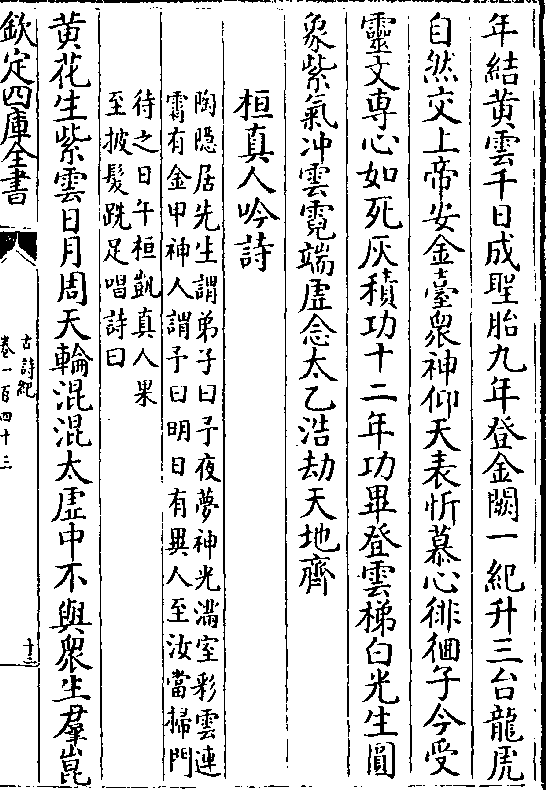 年結黄雲千日成聖胎九年登金闕一紀升三台龍虎
自然交上帝安金臺衆神仰天表忻慕心徘徊子今受
靈文専心如死灰積功十二年功畢登雲梯白光生圓
象紫氣冲雲霓端虛念太乙浩劫天地齊
桓真人吟詩
陶隠居先生謂弟子曰子夜夢神光滿室彩雲連
霄有金甲神人謂予曰明日有異人至汝當掃門
待之日午桓凱真人果
至披髮跣足唱詩曰
黄花生紫雲日月周天輪混混太虛中不與衆生羣崑
欽定四庫全書
古詩紀
卷一百四十三
十三